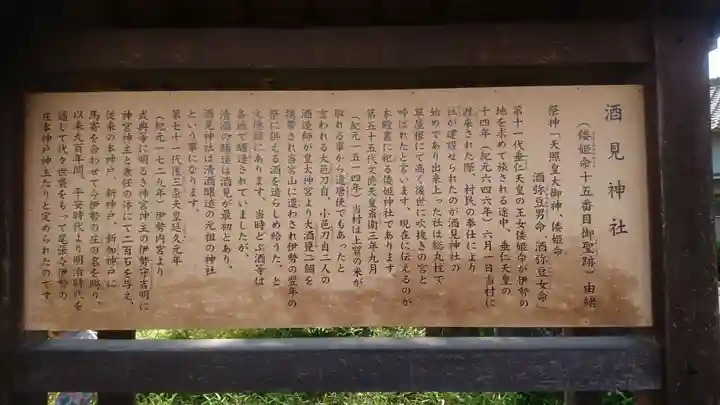 酒見神社
（倭姫命十五番目御聖跡）由緒
祭神「天照皇大御神、倭姫命
酒弥豆男命、酒弥豆女命」
第十一代垂仁天皇の王女倭姫命が伊勢の
地を求めて旅される途中、垂仁天皇の
十四年（紀元六四六年）六月一日当村に
渡来された際、村民の奉仕により
社が建設せられたのが酒見神社の
始めであり出来上った社は総丸柱で
草屋根にて高く後世に吹抜きの宮と
呼ばれたと言います。現在に伝えるのが
本殿裏に祀る倭姫神社であります。
第五十五代文徳天皇斎衡三年九月
（紀元一五一四年）当村は上質の米が
取れる事から遣唐使でもあったと
言われる大邑刀自、小邑刀自二人の
酒造師が皇太神宮より大酒甕二個を
携帯され当宮山に遣わされ伊勢の翌年の
祭に供える酒を造らしめ給うた と
文徳録にあります。当時どぶ酒等は
各地で醸造されていましたが、
清酒の醸造は酒見が最初とあり、
酒見神社は清酒醸造の元祖の神社
という事になります。
第七十一代後三条天皇延久元年
（紀元一七二九年）伊勢内宮より
式典等に明るい神宮神主の伊勢守吉明に
神宮神主と兼任の侭にて二百石を与え、
従来の本神戸、新神戸、新加神戸に
馬寄を合わせて今伊勢の庄の名を賜り、
以来九百年間、平安時代より明治時代を
通して代々世襲をもって尾張今伊勢の
庄本神戸神主たりと定められたのです